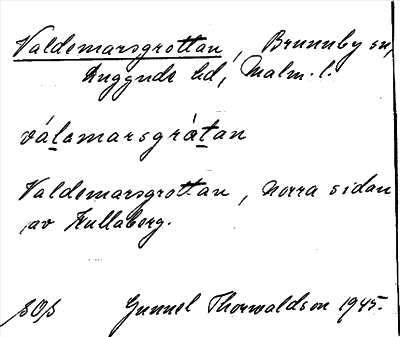 Valdemarsgrottan, Brunnby sn,
Luggude hd, Malm. l.
válamarsgrátan
Valdemarsgrottan, norra sidan
av Kullaberg.
SOS Gunnel Thorwaldson 1945.